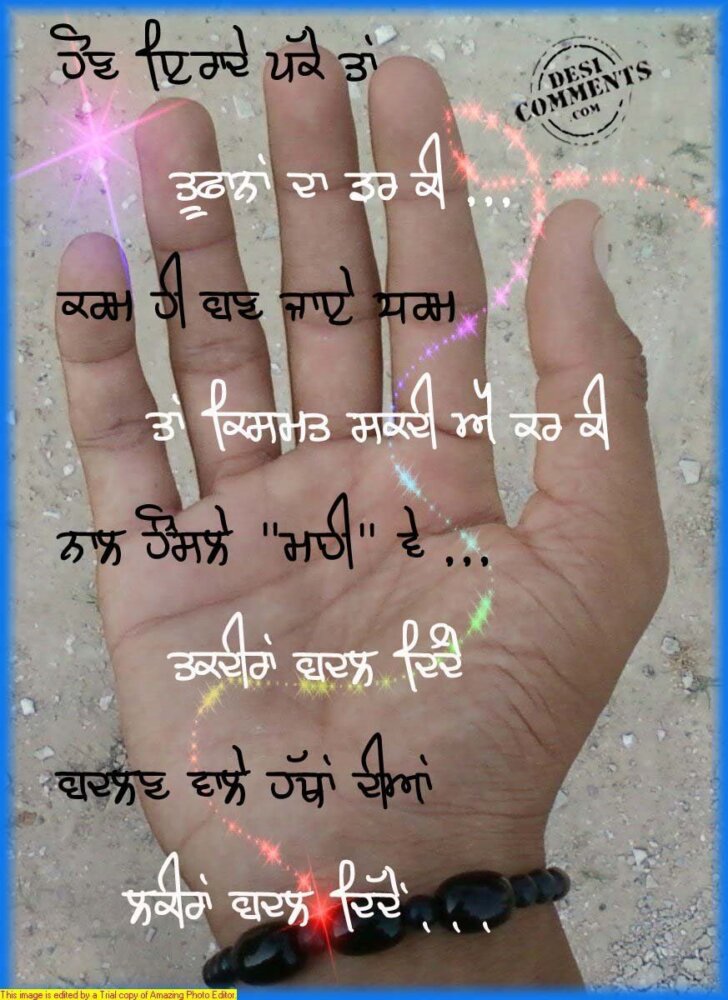 ਹੋਣ ਇਰਾਦੇ ਪੱਕੇ ਤਾਂ
DESI
COMMENTS
.COM
ਤੂਫਾਨਾਂ ਦਾ ਡਰ ਕੀ ...
ਕਰਮ ਹੀ ਬਣ ਜਾਏ ਧਰਮ
ਤਾਂ ਕਿਸਮਤ ਸਕਦੀ ਐ ਕਰ ਕੀ
ਨਾਲ ਹੌਂਸਲੇ "ਮਾਹੀ" ਵੇ ...
ਤਕਦੀਰਾਂ ਬਦਲ ਦਿੰਦੇ
ਬਦਲਣ ਵਾਲੇ ਹੱਥਾਂ ਦੀਆਂ
ਲਕੀਰਾਂ ਬਦਲ ਦਿੰਦੇ . . .
This image is edited by a Trial copy of Amazing Photo Editor